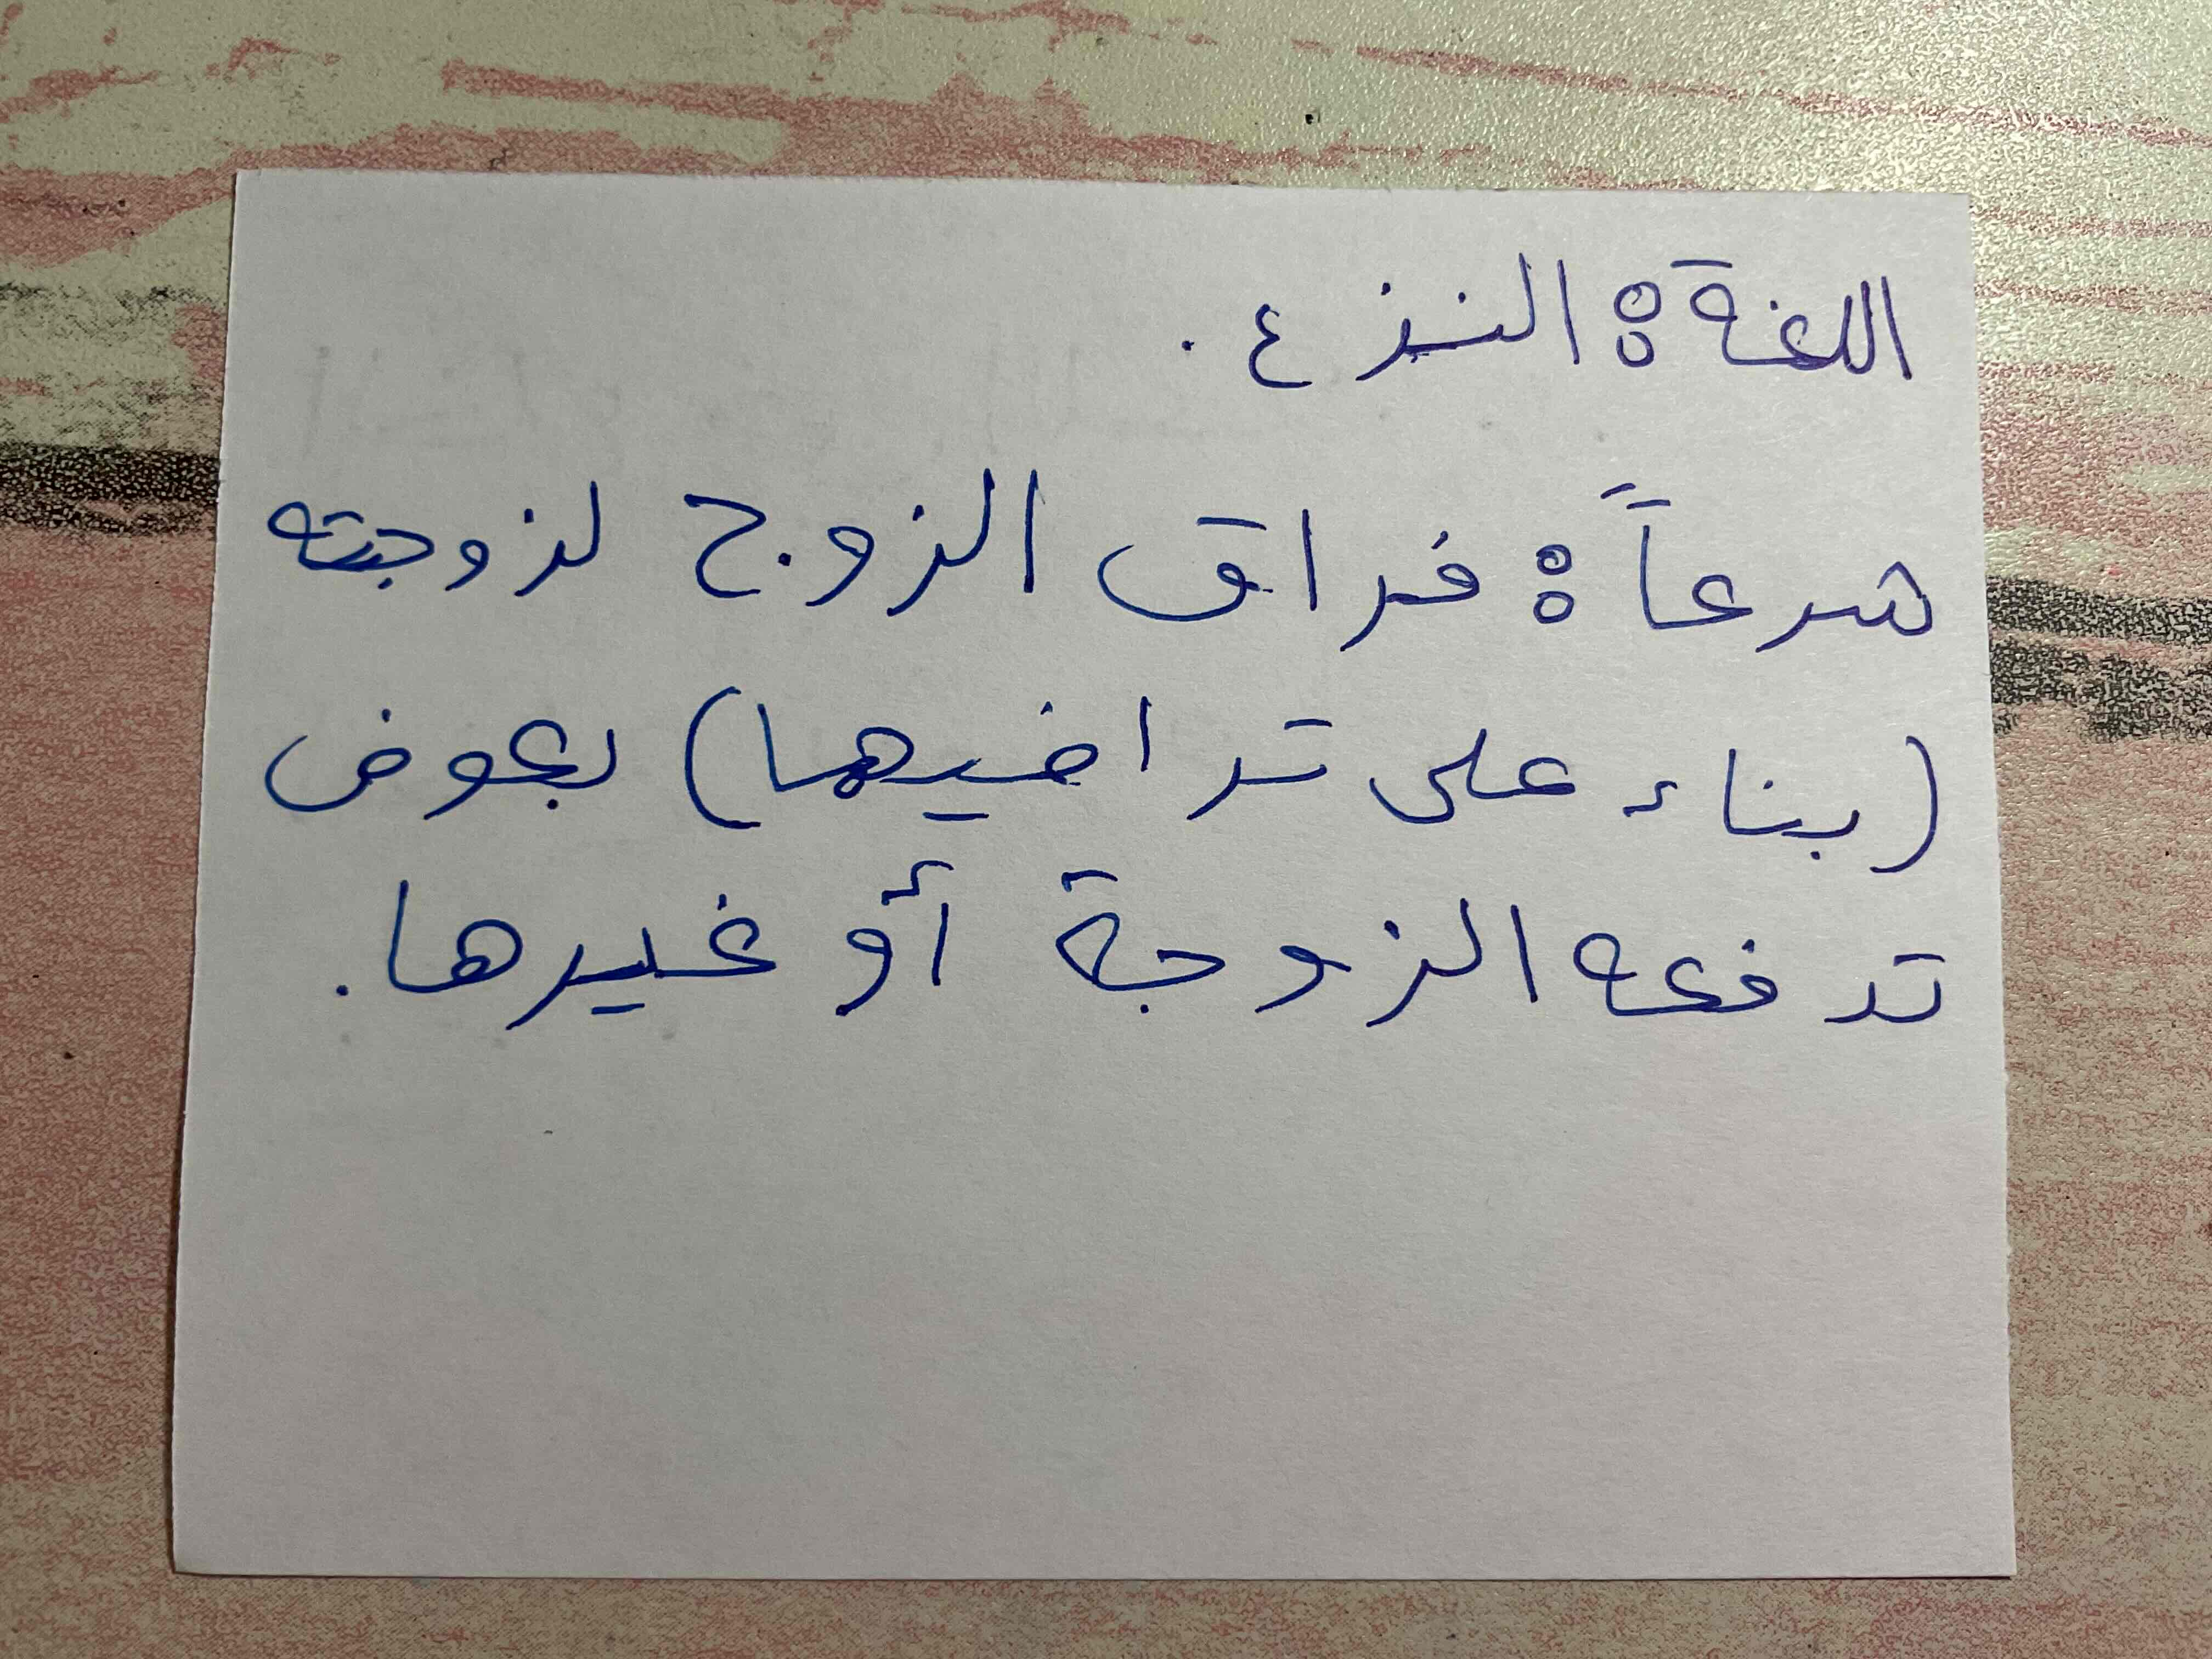 اللغة: النزع.
شرعاً: فراق الزوج لزوجته
(بناء على تراضيهما) بعوض
تدفعه الزوجة أو غيرها.